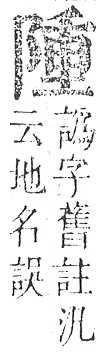 譌字舊註汎
云地名誤